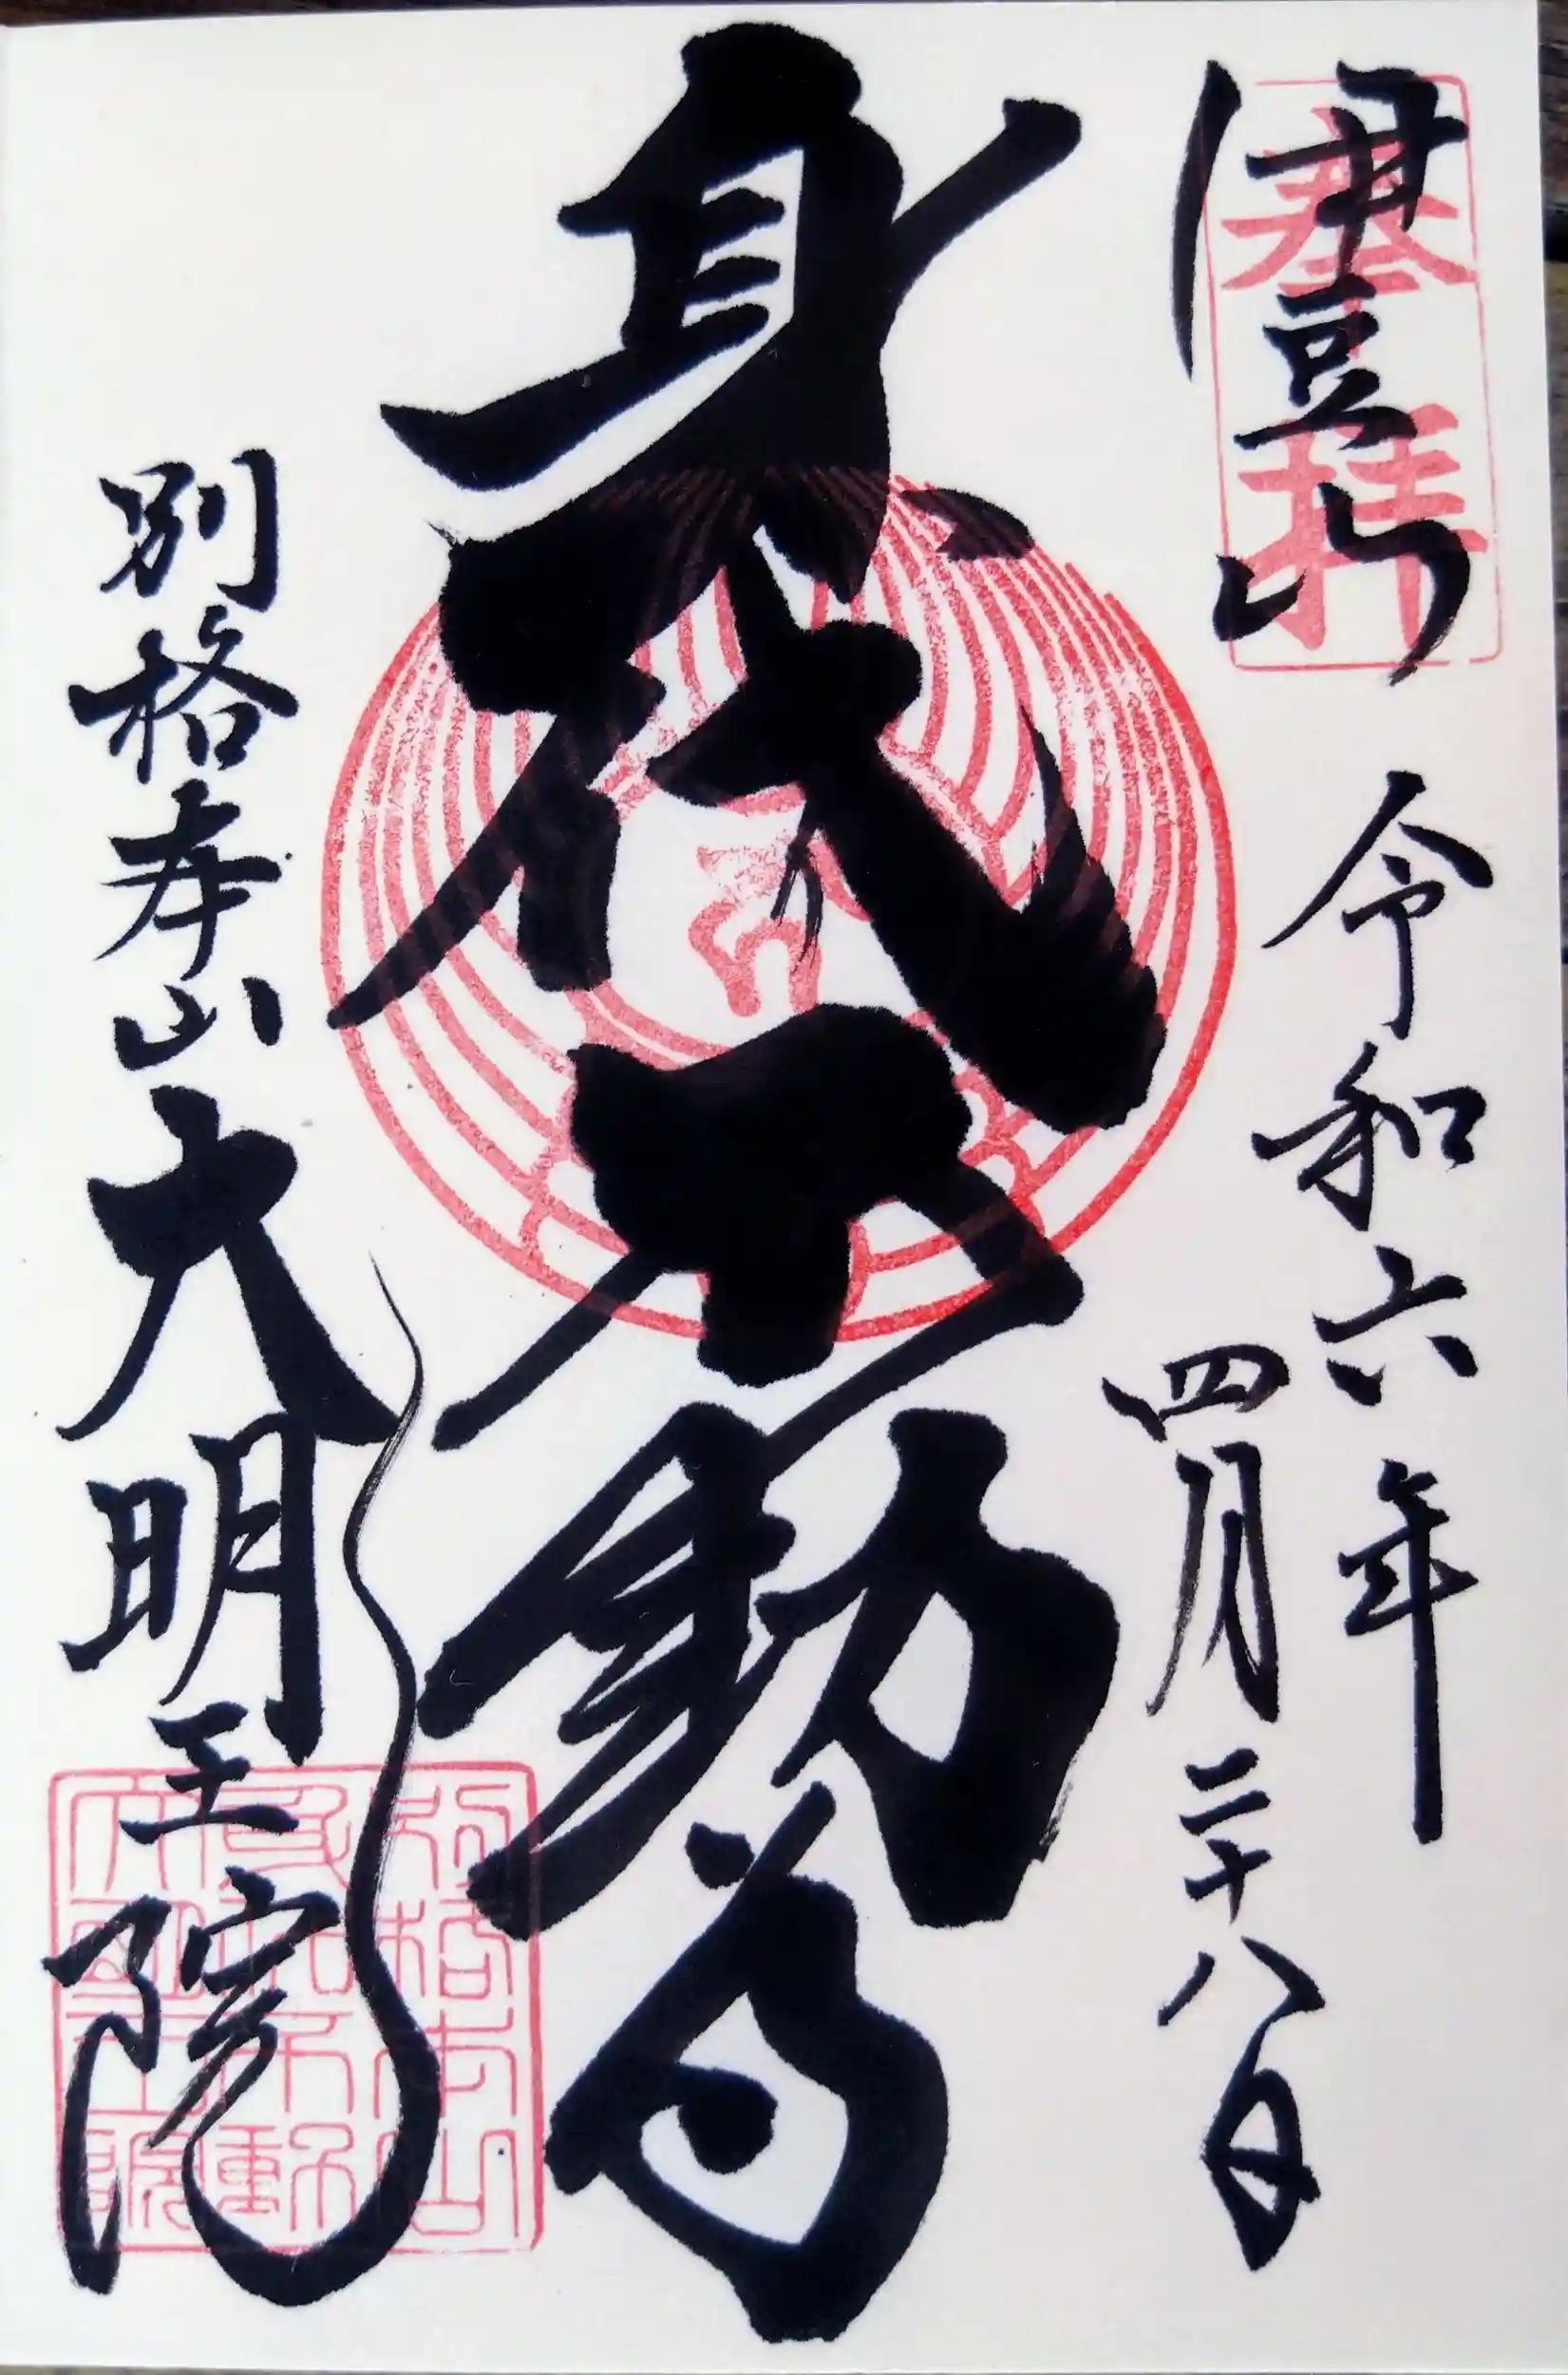 奉拝
伊豆山
令和六年
四月二十八日
身代不動尊
別格本山大明王院
別格本山
身代不動
大明王院